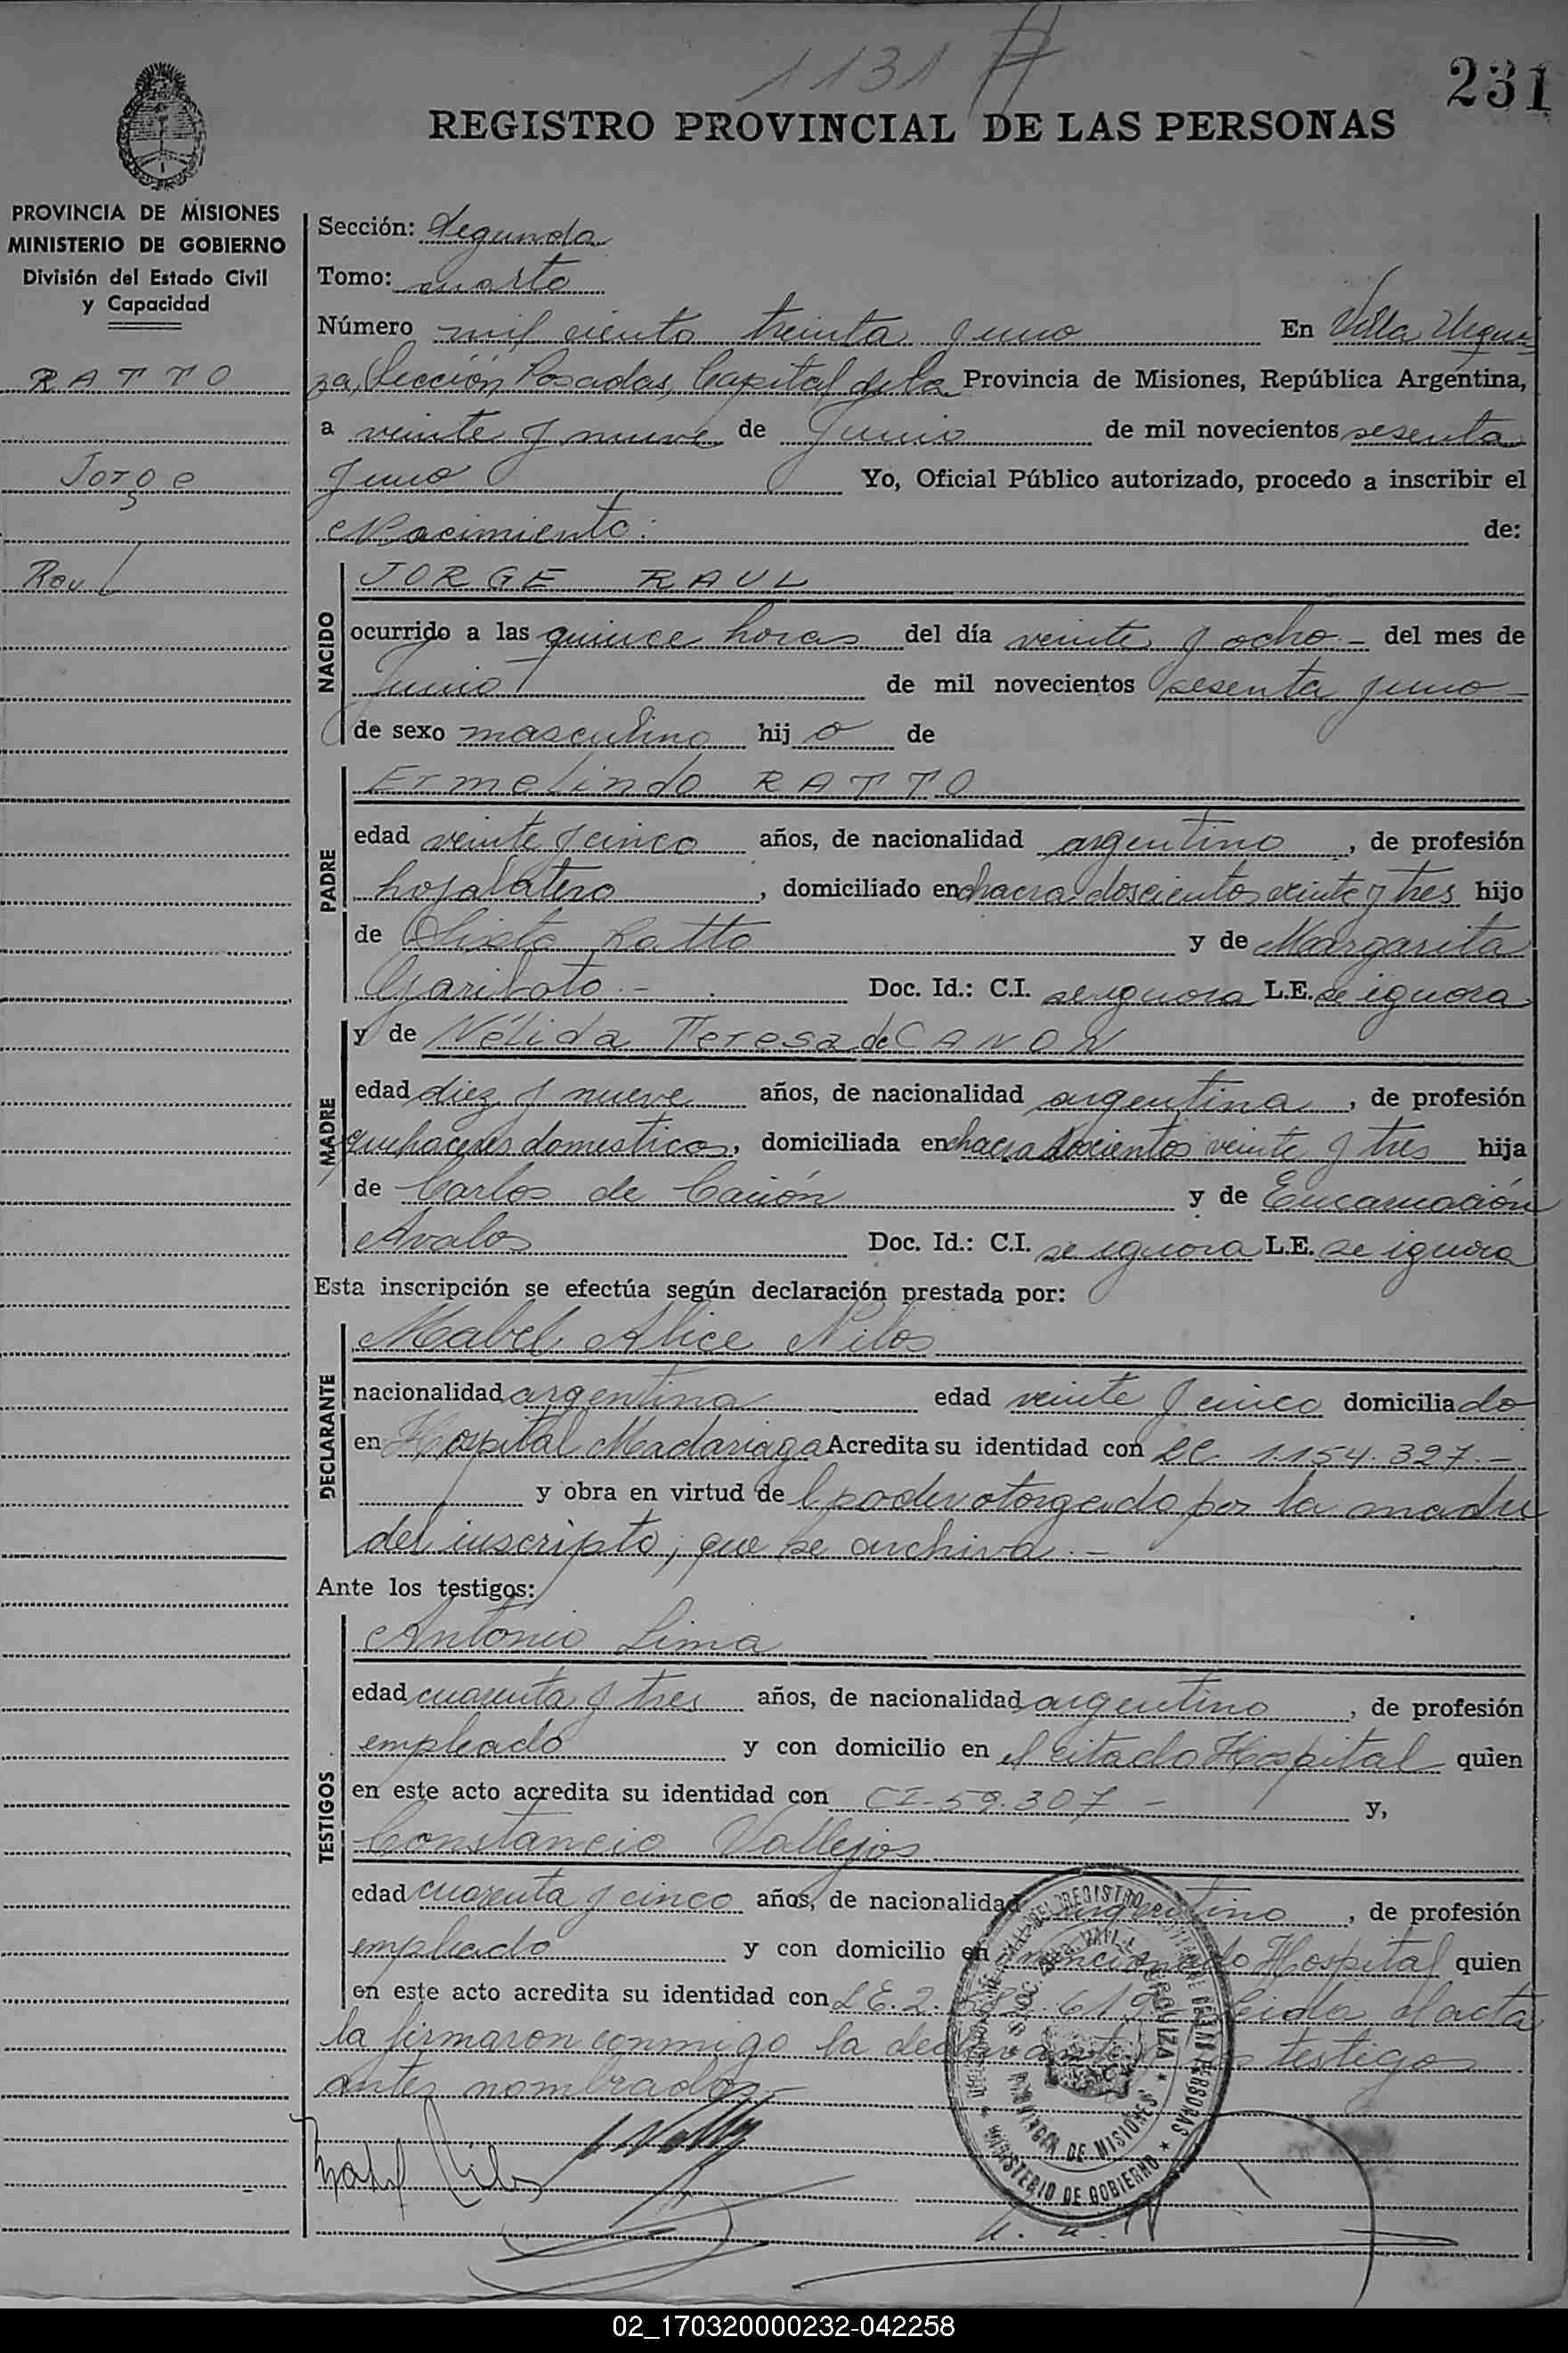 1131
231
REGISTRO PROVINCIAL DE LAS PERSONAS
PROVINCIA DE MISIONES
MINISTERIO DE GOBIERNO
División del Estado Civil
y Capacidad
RATTO
Jorge
Raul
Sección: Segunda
Tomo: cuarto
Número mil ciento treinta y uno En Villa Urqui-
za, Sección Posadas, Capital de la Provincia de Misiones, República Argentina,
a veinte y nueve de Junio de mil novecientos sesenta
y uno Yo, Oficial Público autorizado, procedo a inscribir el
Nacimiento. de:
NACIDO
JORGE RAUL
ocurrido a las quince horas del día veinte y ocho - del mes de
Junio de mil novecientos sesenta y uno -
de sexo masculino hij o de
PADRE
Ermelindo RATTO
edad veinte y cinco años, de nacionalidad argentino, de profesión
hojalatero, domiciliado en chacra doscientos veinte y tres hijo
de Ratto y de Margarita
Doc. Id.: C.I. se ignora L.E. se ignora
MADRE
y de Nélida Teresa de CANON
edad diez y nueve años, de nacionalidad argentina, de profesión
quehaceres domesticos, domiciliada en chacra doscientos veinte y tres hija
de Carlos de Cañón y de Encarnación
Avalos Doc. Id.: C.I. se ignora L.E. se ignora
Esta inscripción se efectúa según declaración prestada por:
DECLARANTE
Mabel Alice Nilos
nacionalidad argentina edad veinte y cinco domiciliado
en Hospital Madariaga Acredita su identidad con LC. 1.154.327.-
y obra en virtud del poder otorgado por la madre
del inscripto, que se archiva.-
Ante los testigos:
TESTIGOS
Antonio Lima
edad cuarenta y tres años, de nacionalidad argentino, de profesión
empleado y con domicilio en el citado Hospital quien
en este acto acredita su identidad con CI-59.307 - y,
Constancio Vallejos
edad cuarenta y cinco años, de nacionalidad argentino, de profesión
empleado y con domicilio en mencionado Hospital quien
en este acto acredita su identidad con LE. 2. Leida el acta
la firmaron conmigo la declarante testigos
antes nombrados.-
PROVINCIA DE MISIONES
MINISTERIO DE GOBIERNO
02_170320000232-042258